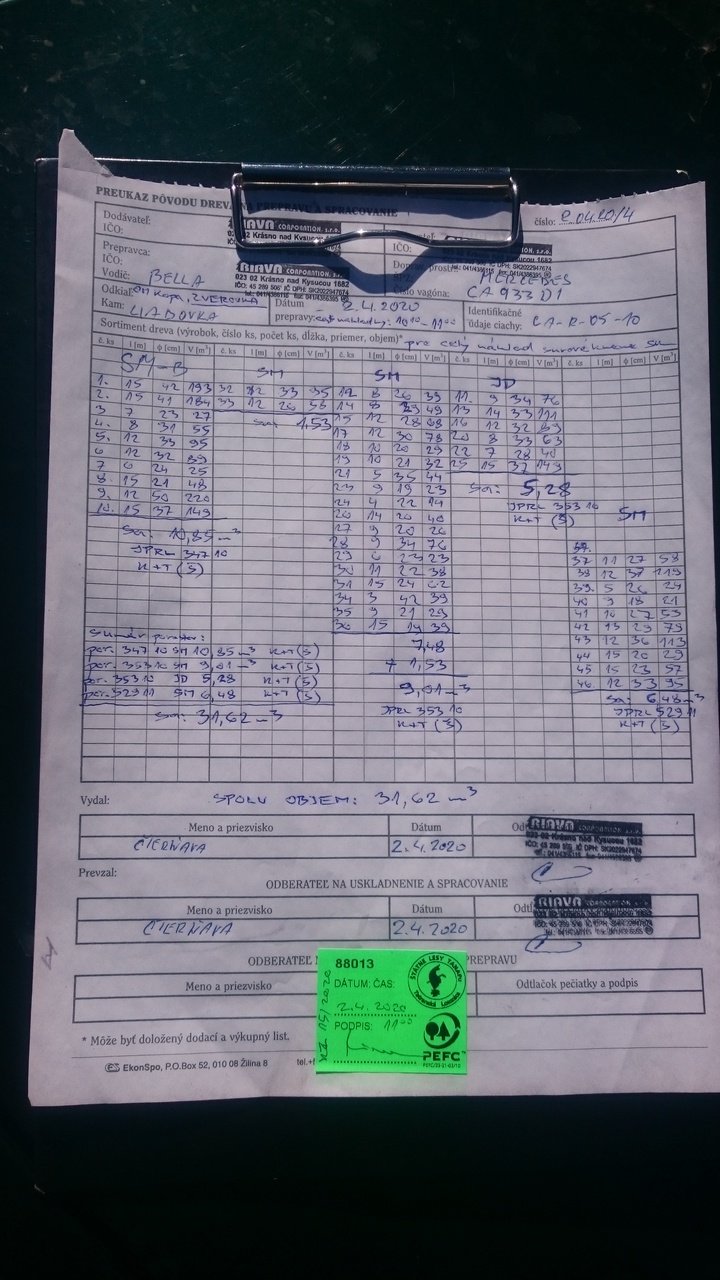 PREUKAZ PÔVODU DREVA NA PREPRAVU A SPRACOVANIE
číslo: 2.04.20/4
Dodávateľ:
IČO:
RIAVA CORPORATION, s.r.o.
023 02 Krásno nad Kysucou 1682
IČO:
Prepravca:
IČO:
Vodič: BELLA
RIAVA CORPORATION, s.r.o.
023 02 Krásno nad Kysucou 1682
MERCEDES
číslo vagóna: CA 933 DI
Odkiaľ: OM Kopa, ZVEROVKA
Kam: LIADOVKA
Dátum prepravy: 2.4.2020
Identifikačné údaje ciachy: CA-R-05-10
Sortiment dreva (výrobok, číslo ks, počet ks, dĺžka, priemer, objem)* pre celý náklad
č. ks l [m] ϕ [cm] V [m³] č. ks l [m] ϕ [cm] V [m³] č. ks l [m] ϕ [cm] V [m³] č. ks l [m] ϕ [cm] V [m³] č. ks l [m] ϕ [cm] V [m³]
SM-B
1. 15 42 193
2. 15 41 184
3 7 23 27
4. 8 31 55
5. 12 33 95
6 12 32 89
7 6 24 25
8. 15 21 48
9. 12 50 220
10. 15 37 149
Sa: 10,85 m³
JPRL 347 10
K+T (5)
SM
32 12 33 35
33 12 26 58
Sa: 1,53
SM
12 8 26 39
14 8 29 49
15 12 28 68
17 12 30 78
18 10 20 29
19 10 21 32
21 5 35 44
23 9 19 23
24 4 22 14
26 14 20 40
27 9 20 26
28 9 34 76
29 6 23 23
30 11 22 38
31 15 24 62
34 3 42 39
35 9 21 29
36 15 19 39
7,48
+ 1,53
9,01 m³
JPRL 353 10
K+T (5)
JD
11. 9 34 76
13 14 33 111
16 12 32 89
20 8 33 63
22 7 28 40
25 15 37 149
Sa: 5,28
JPRL 353 10
K+T (5)
SM
37 11 27 58
38 12 37 119
39. 5 26 24
40 9 18 21
41 10 27 53
42 13 29 79
43 12 36 113
44 15 20 29
45 15 23 57
46 12 33 95
Sa: 6,48 m³
JPRL 529 11
K+T (5)
Sumár porastov:
por. 347 10 SM 10,85 m³ K+T (5)
por. 353 10 SM 9,01 m³ K+T (5)
por. 353 10 JD 5,28 K+T (5)
por. 529 11 SM 6,48 K+T (5)
Sa: 31,62 m³
SPOLU OBJEM: 31,62 m³
Vydal:
Meno a priezvisko Dátum
ČIERŇAVA 2.4.2020
RIAVA CORPORATION, s.r.o.
023 02 Krásno nad Kysucou 1682
Prevzal:
ODBERATEĽ NA USKLADNENIE A SPRACOVANIE
Meno a priezvisko Dátum
ČIERŇAVA 2.4.2020
RIAVA CORPORATION, s.r.o.
ODBERATEĽ PREPRAVU
Meno a priezvisko Odtlačok pečiatky a podpis
88013
DÁTUM; ČAS:
2.4.2020
PODPIS: 11⁰⁰
ŠTÁTNE LESY TANAPU
Tatranská Lomnica
PEFC
* Môže byť doložený dodací a výkupný list.
EkonSpo, P.O.Box 52, 010 08 Žilina 8